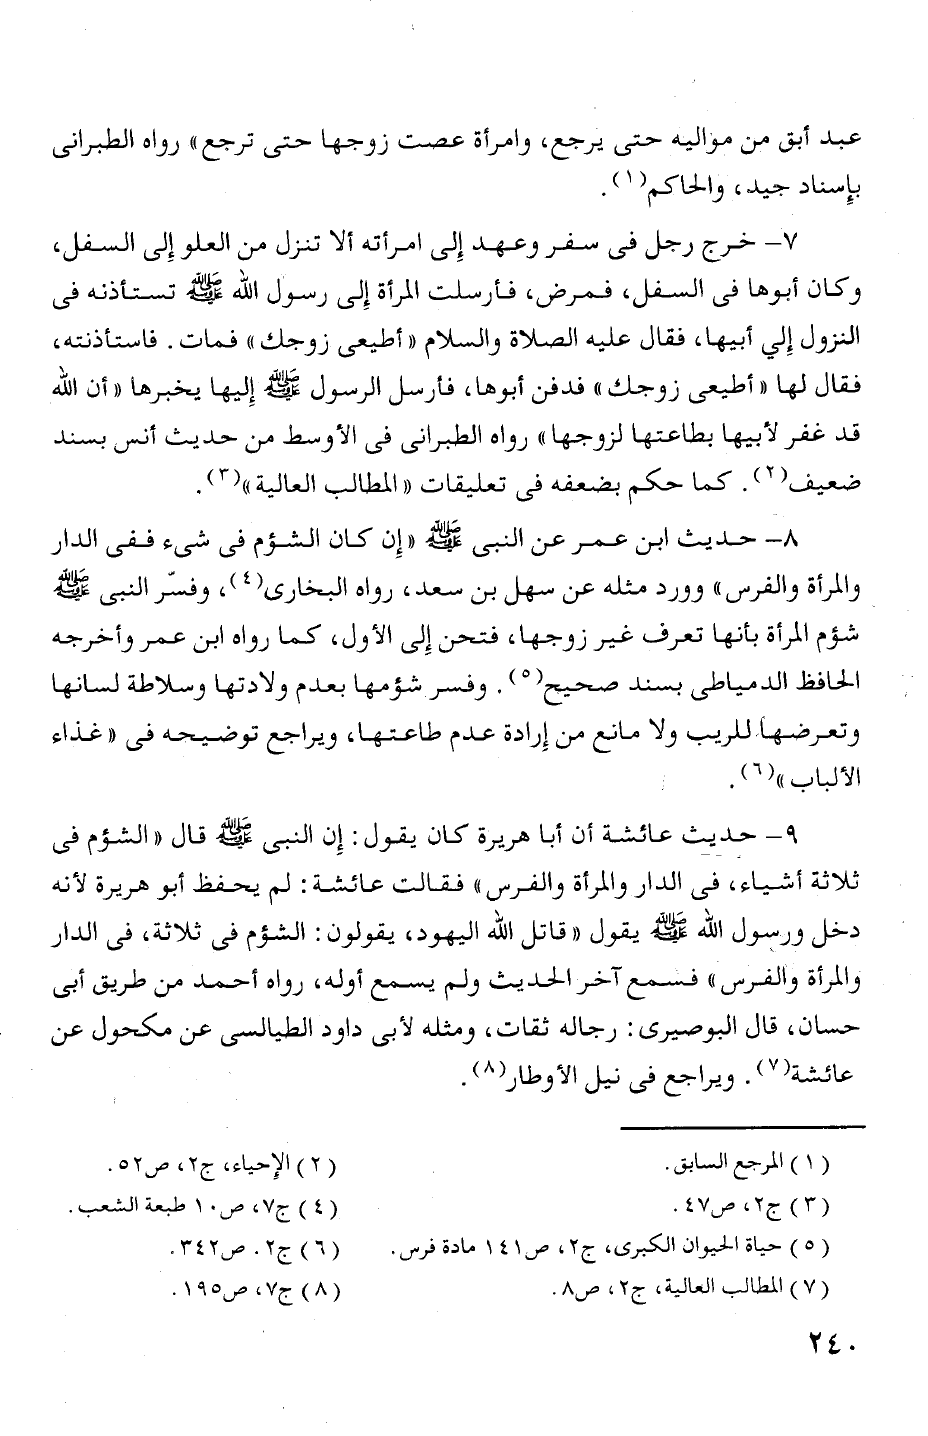 عبد أبق من مواليه حتى يرجع، وامرأة عصت زوجها حتى ترجع» رواه الطبرانى
بإسناد جيد، والحاكم(١).
٧– خرج رجل فى سفر وعهد إلى امرأته ألا تنزل من العلو إلى السفل،
وكان أبوها فى السفل، فمرض، فأرسلت المرأة إلى رسول الله ﷺ تستأذنه فى
النزول إلي أبيها، فقال عليه الصلاة والسلام «أطيعى زوجك» فمات. فاستأذنته،
فقال لها «أطيعى زوجك» فدفن أبوها، فأرسل الرسول ﷺ إليها يخبرها «أن الله
قد غفر لأبيها بطاعتها لزوجها» رواه الطبرانى فى الأوسط من حديث أنس بسند
ضعيف(٢). كما حكم بضعفه فى تعليقات «المطالب العالية»(٣).
٨– حديث ابن عمر عن النبى ﷺ «إن كان الشؤم فى شىء ففى الدار
والمرأة والفرس» وورد مثله عن سهل بن سعد، رواه البخارى(٤)، وفسّر النبى ﷺ
شؤم المرأة بأنها تعرف غير زوجها، فتحن إلى الأول، كما رواه ابن عمر وأخرجه
الحافظ الدمياطى بسند صحيح(٥). وفسر شؤمها بعدم ولادتها وسلاطة لسانها
وتعرضها للريب ولا مانع من إرادة عدم طاعتها، ويراجع توضيحه فى «غذاء
الألباب»(٦).
٩– حديث عائشة أن أبا هريرة كان يقول: إن النبى ﷺ قال «الشؤم فى
ثلاثة أشياء، فى الدار والمرأة والفرس» فقالت عائشة: لم يحفظ أبو هريرة لأنه
دخل ورسول الله ﷺ يقول «قاتل الله اليهود، يقولون: الشؤم فى ثلاثة، فى الدار
والمرأة والفرس» فسمع آخر الحديث ولم يسمع أوله، رواه أحمد من طريق أبى
حسان، قال البوصيرى: رجاله ثقات، ومثله لأبى داود الطيالسى عن مكحول عن
عائشة(٧). ويراجع فى نيل الأوطار(٨).
(١) المرجع السابق. (٢) الإحياء، ج٢، ص٥٢.
(٣) ج٢، ص٤٧. (٤) ج٧، ص١٠ طبعة الشعب.
(٥) حياة الحيوان الكبرى، ج٢، ص١٤١ مادة فرس. (٦) ج٢. ص٣٤٢.
(٧) المطالب العالية، ج٢، ص٨. (٨) ج٧، ص١٩٥.
٢٤٠